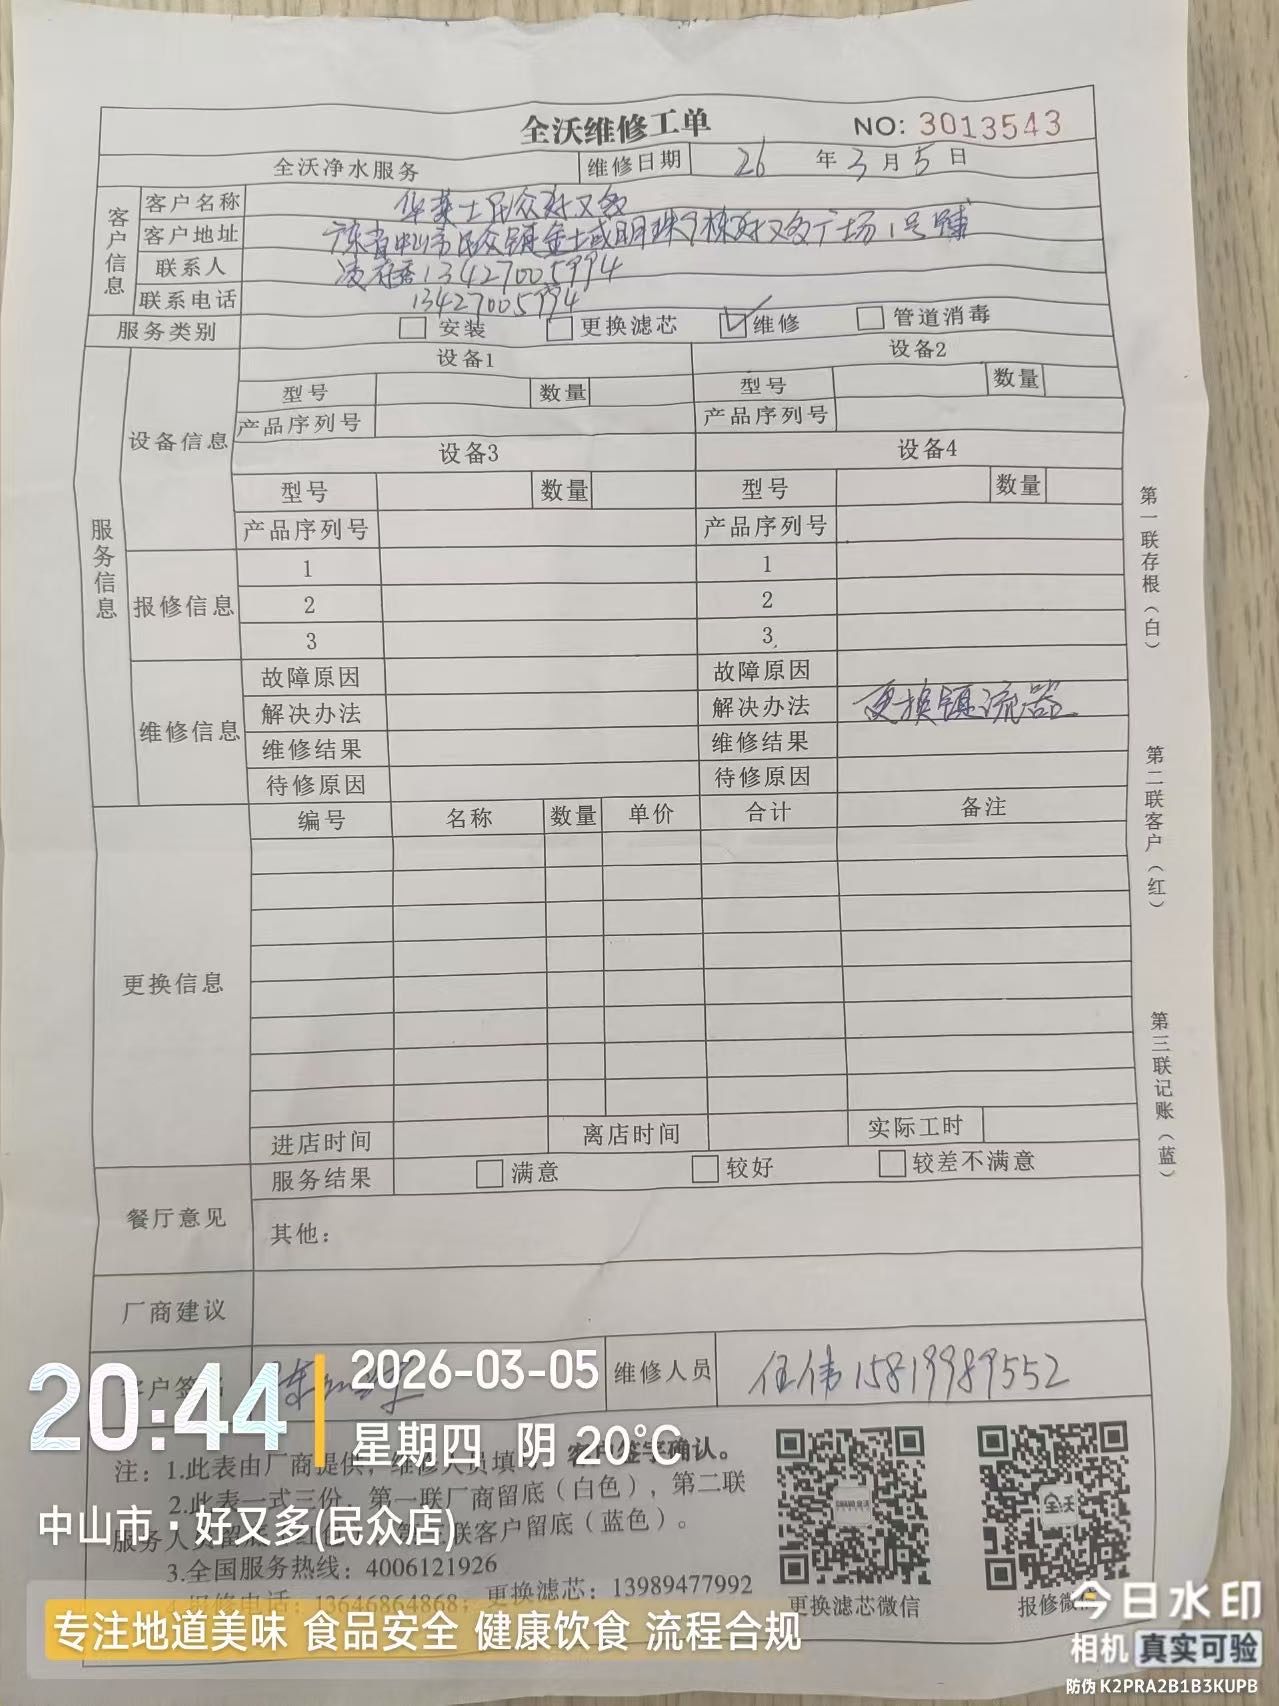 全沃维修工单
NO: 3013543
全沃净水服务 维修日期 26 年 3 月 5 日
客户信息
客户名称 华莱士民众好又多
客户地址 广东省中山市民众镇金土成明珠 栋好又多广场1号铺
联系人 凌 香13427005994
联系电话 13427005994
服务类别 安装 更换滤芯 维修 管道消毒
服务信息
设备信息
设备1 设备2
型号 数量 型号 数量
产品序列号 产品序列号
设备3 设备4
型号 数量 型号 数量
产品序列号 产品序列号
报修信息
1 1
2 2
3 3
维修信息
故障原因 故障原因
解决办法 解决办法 更换镇流器
维修结果 维修结果
待修原因 待修原因
更换信息
编号 名称 数量 单价 合计 备注
进店时间 离店时间 实际工时
餐厅意见
服务结果 满意 较好 较差不满意
其他：
厂商建议
客户签 维修人员 任伟 15819989552
注：1.此表由厂商提供，维修人员填 客户签字确认。
2.此表一式三份，第一联厂商留底（白色），第二联
服务人员留底 红色 第三联客户留底（蓝色）。
3.全国服务热线：4006121926
4.报修电话：13646864868；更换滤芯：13989477992
更换滤芯微信
报修微
全沃
第一联存根（白）
第二联客户（红）
第三联记账（蓝）
20:44
2026-03-05
星期四 阴 20°C
中山市·好又多(民众店)
专注地道美味 食品安全 健康饮食 流程合规
今日水印
相机 真实可验
防伪 K2PRA2B1B3KUPB